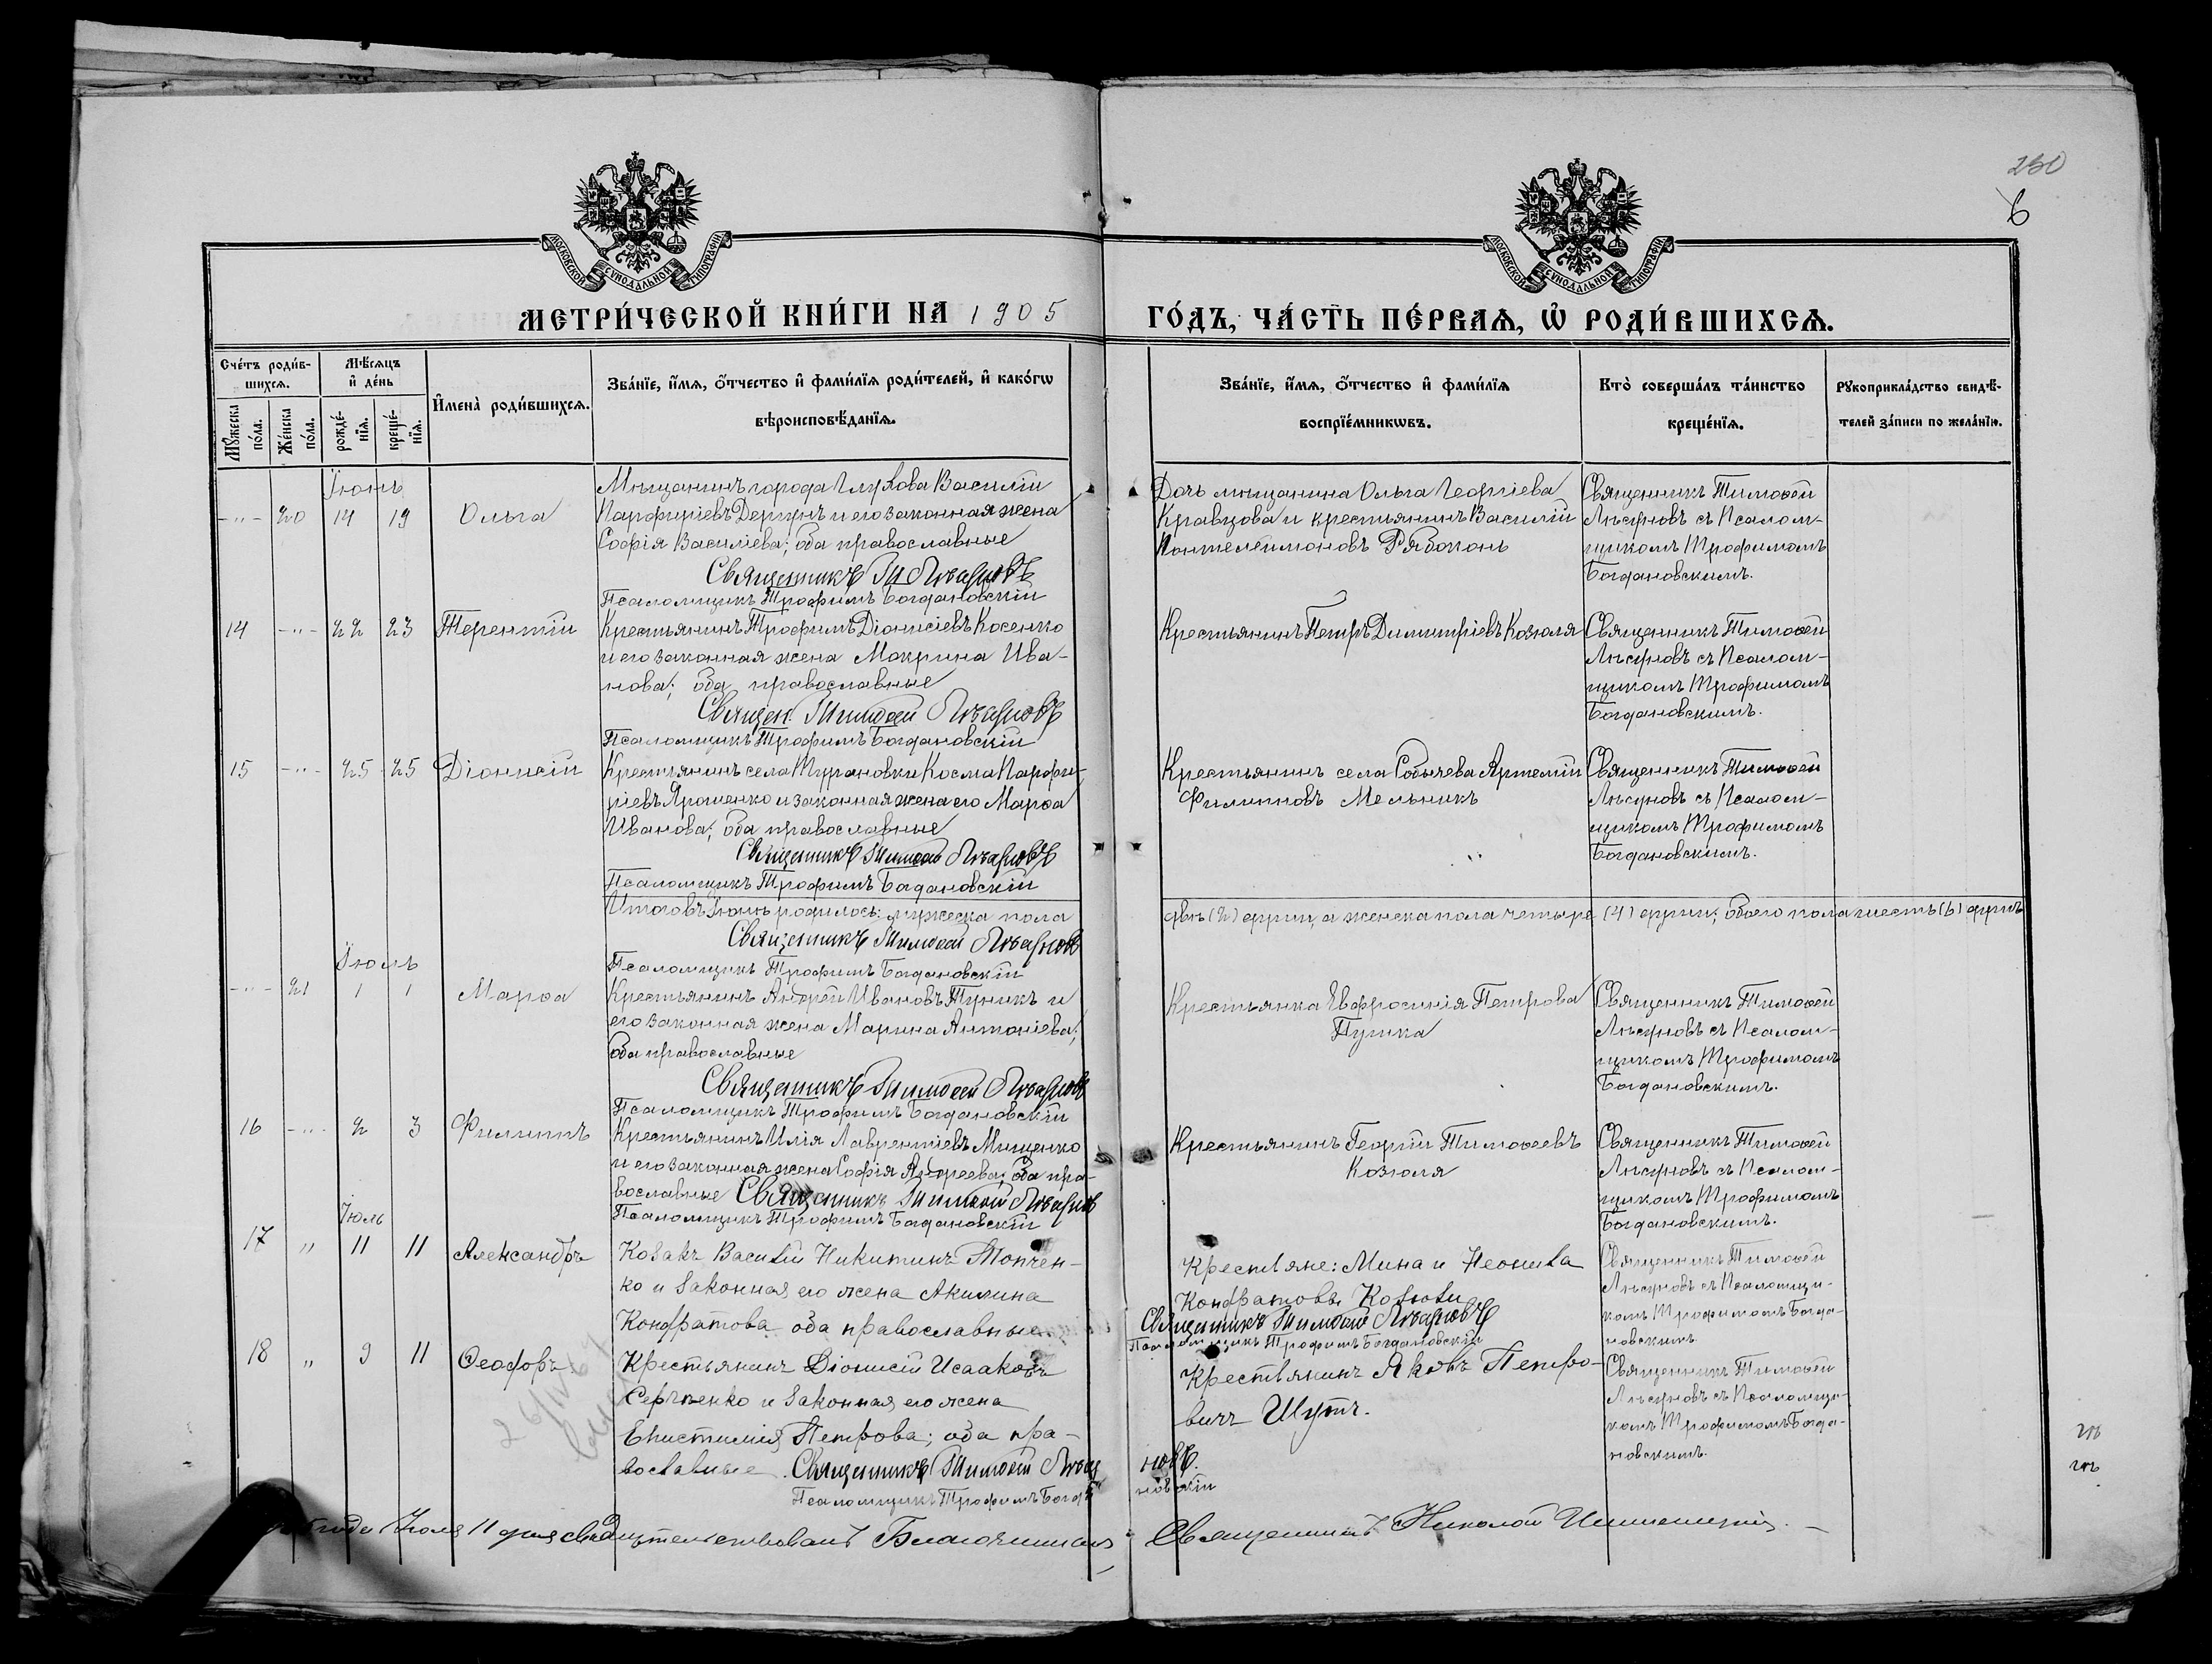 250
6
МОСКОВСКОЙ СѴНОДАЛЬНОЙ ТИПОГРАФІИ
МОСКОВСКОЙ СѴНОДАЛЬНОЙ ТИПОГРАФІИ
МЕТРИ́ЧЕСКОЙ КНИ́ГИ НА 1905
ГО́ДЪ, ЧА́СТЬ ПЕ́РВАѦ, Ѿ РОДИ́ВШИХСѦ.
Сче́тъ роди́в-
шихсѧ.
Мѣ́сѧцъ
и҆ де́нь
Мꙋ́жеска по́ла.
Же́нска по́ла.
рожде́-
нїѧ.
креще́-
нїѧ.
И҆мена̀ роди́вшихсѧ.
Зва́нїе, и҆́мѧ, ѻ҆́тчество и҆ фами́лїѧ роди́телей, и҆ како́гѡ
вѣроисповѣ́данїѧ.
Зва́нїе, и҆́мѧ, ѻ҆́тчество и҆ фами́лїѧ
воспрїе́мникѡвъ.
Кто̀ соверша́лъ та́инство
креще́нїѧ.
Рꙋкоприкла́дство свидѣ́-
телей за́писи по жела́нїю.
Іюнь
-"- 20 14 19 Ольга
Мѣщанинъ города Глухова Василій
Парфиріевъ Дергунъ и его законная жена
Софія Василіева; оба православные
Священникъ Ти Лѣсуновъ
Псаломщикъ Трофимъ Богдановскій
Дочь мѣщанина Ольга Георгіева
Кравцова и крестьянинъ Василій
Пантелеимоновъ Рябоконь
Священникъ Тимоѳей
Лѣсуновъ съ Псалом-
щикомъ Трофимомъ
Богдановскимъ.
14 -"- 22 23 Терентій
Крестьянинъ Трофимъ Діонисіевъ Косенко
и его законная жена Мокрина Ива-
нова; оба православные
Священ. Тимоѳей Лѣсуновъ
Псаломщикъ Трофимъ Богдановскій
Крестьянинъ Петръ Димитріевъ Козюля
Священникъ Тимоѳей
Лѣсуновъ съ Псалом-
щикомъ Трофимомъ
Богдановскимъ.
15 -"- 25 25 Діонисій
Крестьянинъ села Турановки Косма Парфи-
ріевъ Ярошенко и законная жена его Марѳа
Иванова; оба православные
Священникъ Тимоѳей Лѣсуновъ
Псаломщикъ Трофимъ Богдановскій
Крестьянинъ села Собычева Артемій
Филипповъ Мельникъ
Священникъ Тимоѳей
Лѣсуновъ съ Псалом-
щикомъ Трофимомъ
Богдановскимъ.
Итого въ Іюнѣ родилось: мужеска пола
двѣ (2) души, а женска пола четыре (4) души; обоего пола шесть (6) душъ
Священникъ Тимоѳей Лѣсуновъ
Псаломщикъ Трофимъ Богдановскій
Іюль
-"- 21 1 1 Марѳа
Крестьянинъ Андрей Ивановъ Туникъ и
его законная жена Марина Антоніева;
оба православные
Священникъ Тимоѳей Лѣсуновъ
Псаломщикъ Трофимъ Богдановскій
Крестьянка Евфросинія Петрова
Пушка
Священникъ Тимоѳей
Лѣсуновъ съ Псалом-
щикомъ Трофимомъ
Богдановскимъ.
16 -"- 2 3 Филиппъ
Крестьянинъ Илія Лаврентіевъ Мищенко
и его законная жена Софія Андреева; оба пра-
вославные Священникъ Тимоѳей Лѣсунов
Псаломщикъ Трофимъ Богдановскій
Крестьянинъ Георгій Тимоѳеевъ
Козюля
Священникъ Тимоѳей
Лѣсуновъ съ Псалом-
щикомъ Трофимомъ
Богдановскимъ.
Іюль
17 " 11 11 Александръ
Козакъ Василій Никитинъ Топчен-
ко и законная его жена Акилина
Кондратова оба православные
Крестьяне: Мина и Неонила
Кондратовы Козюли
Священникъ Тимоѳей Лѣсуновъ
Псаломщикъ Трофимъ Богдановскій
Священникъ Тимоѳей
Лѣсуновъ съ Псаломщи-
комъ Трофимомъ Богда-
новскимъ
18 " 9 11 Ѳеодоръ
Крестьянинъ Діонисій Исааковъ
Сергіенко и законная его жена
Епистимія Петрова; оба пра-
вославные. Священникъ Тимоѳей Лѣсу
новъ.
Псаломщикъ Трофимъ Богда
новскій
Крестьянинъ Яковъ Петро-
вичъ Шутъ.
Священникъ Тимоѳей
Лѣсуновъ съ Псаломщи-
комъ Трофимомъ Богда-
новскимъ.
года Іюля 11 дня свидѣтельствовалъ Благочинный Священникъ Николай